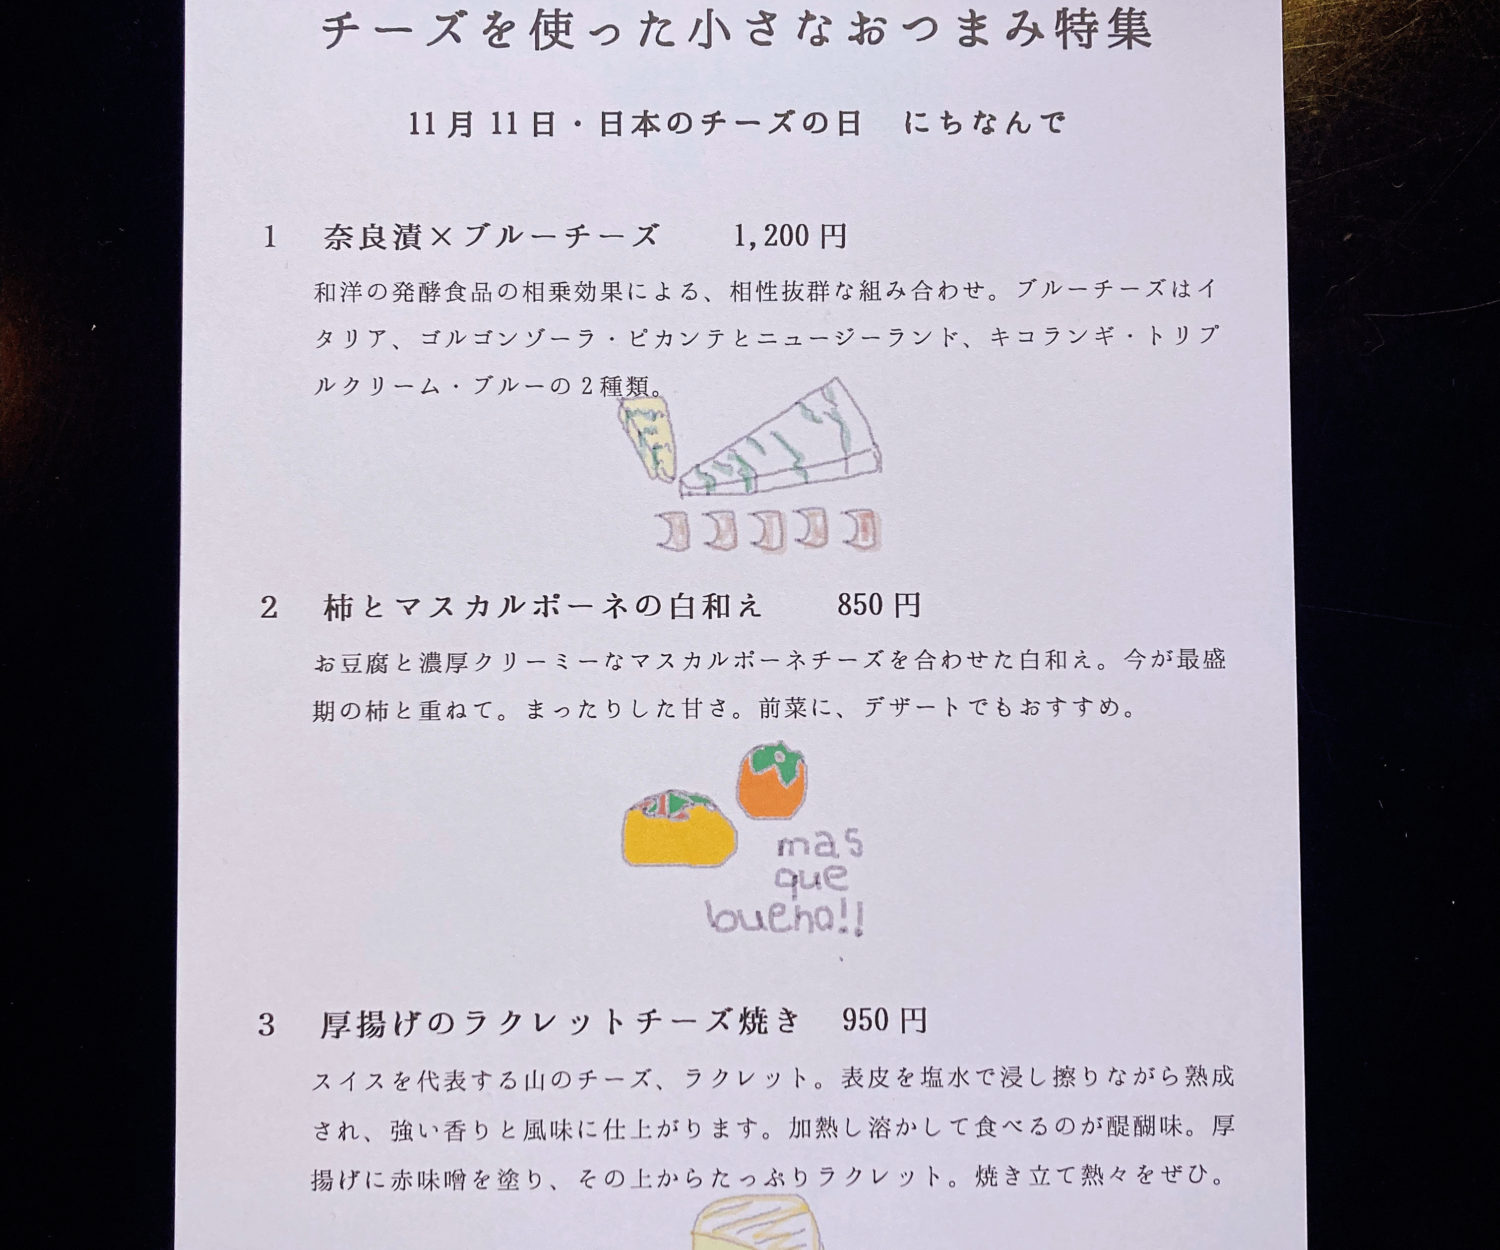 チーズを使った小さなおつまみ特集
11月11日・日本のチーズの日　にちなんで
1　奈良漬×ブルーチーズ　1,200円
和洋の発酵食品の相乗効果による、相性抜群な組み合わせ。ブルーチーズはイ
タリア、ゴルゴンゾーラ・ピカンテとニュージーランド、キコランギ・トリプ
ルクリーム・ブルーの2種類。
2　柿とマスカルポーネの白和え　850円
お豆腐と濃厚クリーミーなマスカルポーネチーズを合わせた白和え。今が最盛
期の柿と重ねて。まったりした甘さ。前菜に、デザートでもおすすめ。
mas
que
bueno!!
3　厚揚げのラクレットチーズ焼き　950円
スイスを代表する山のチーズ、ラクレット。表皮を塩水で浸し擦りながら熟成
され、強い香りと風味に仕上がります。加熱し溶かして食べるのが醍醐味。厚
揚げに赤味噌を塗り、その上からたっぷりラクレット。焼き立て熱々をぜひ。